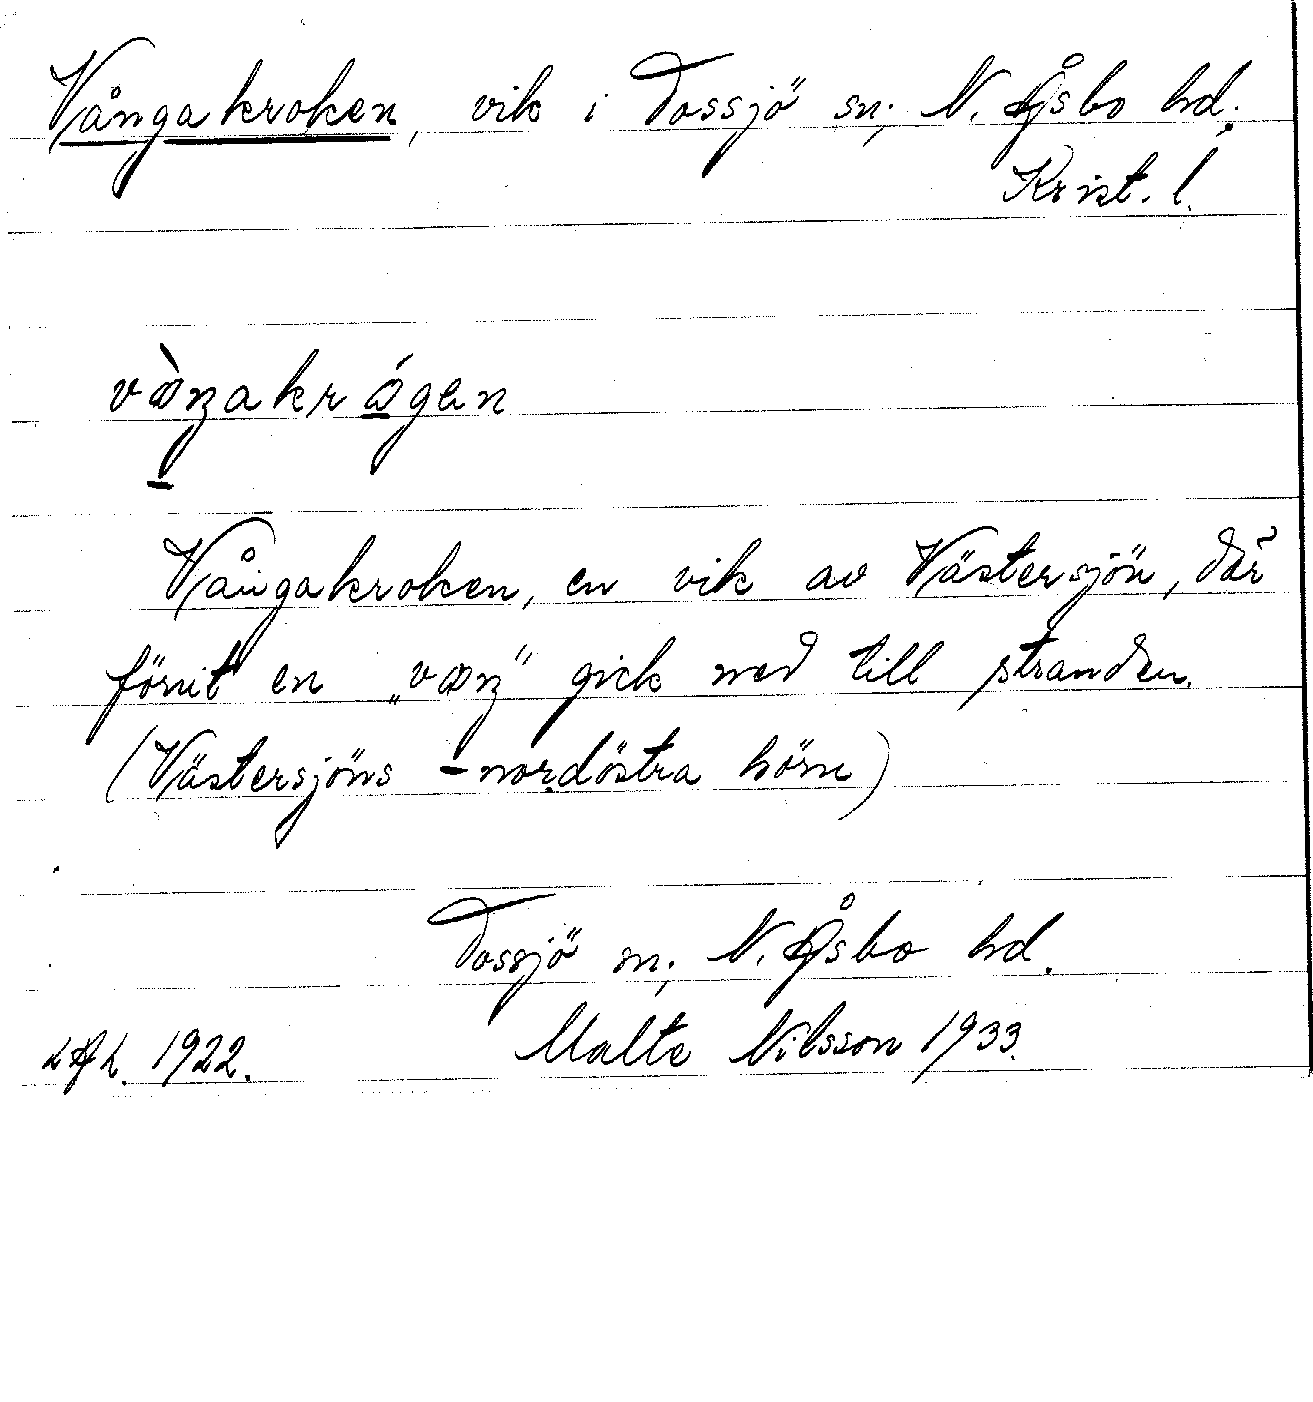 Vångakroken, vik i Tossjö sn; N. Åsbo hd.
Krist. l.
Vångakroken, en vik av Västersjön, där
förut en „våŋ” gick ned till stranden.
(Västersjöns nordöstra hörn)
Tossjö sn; N. Åsbo hd.
LAL. 1922. Malte Nilsson 1933.